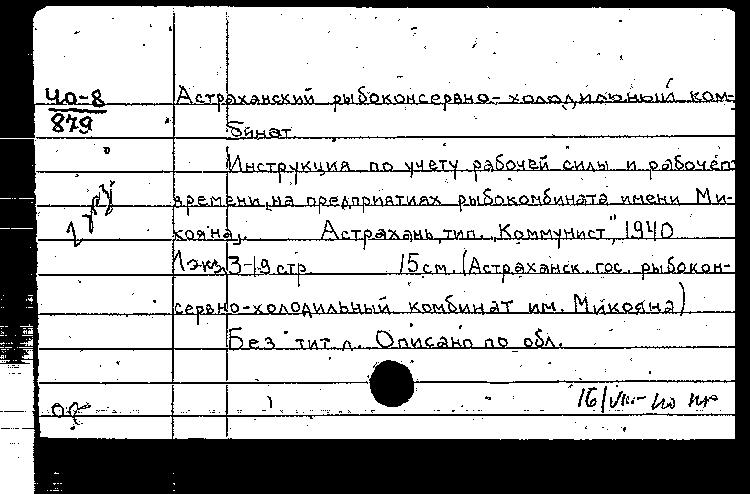 ЧО-8
879
Астраханский рыбоконсервно-холодильный ком-
бинат.
Инструкция по учету рабочей силы и рабочего
времени, на предприятиях рыбокомбината имени Ми-
кояна,.
Астрахань, тип. "Коммунист", 1940
2 экз
1 экз. 3-19 стр. 15 см. (Астраханск. гос. рыбокон-
сервно-холодильный комбинат им. Микояна)
Без тит. л. Описано по обл.
16/VIII-